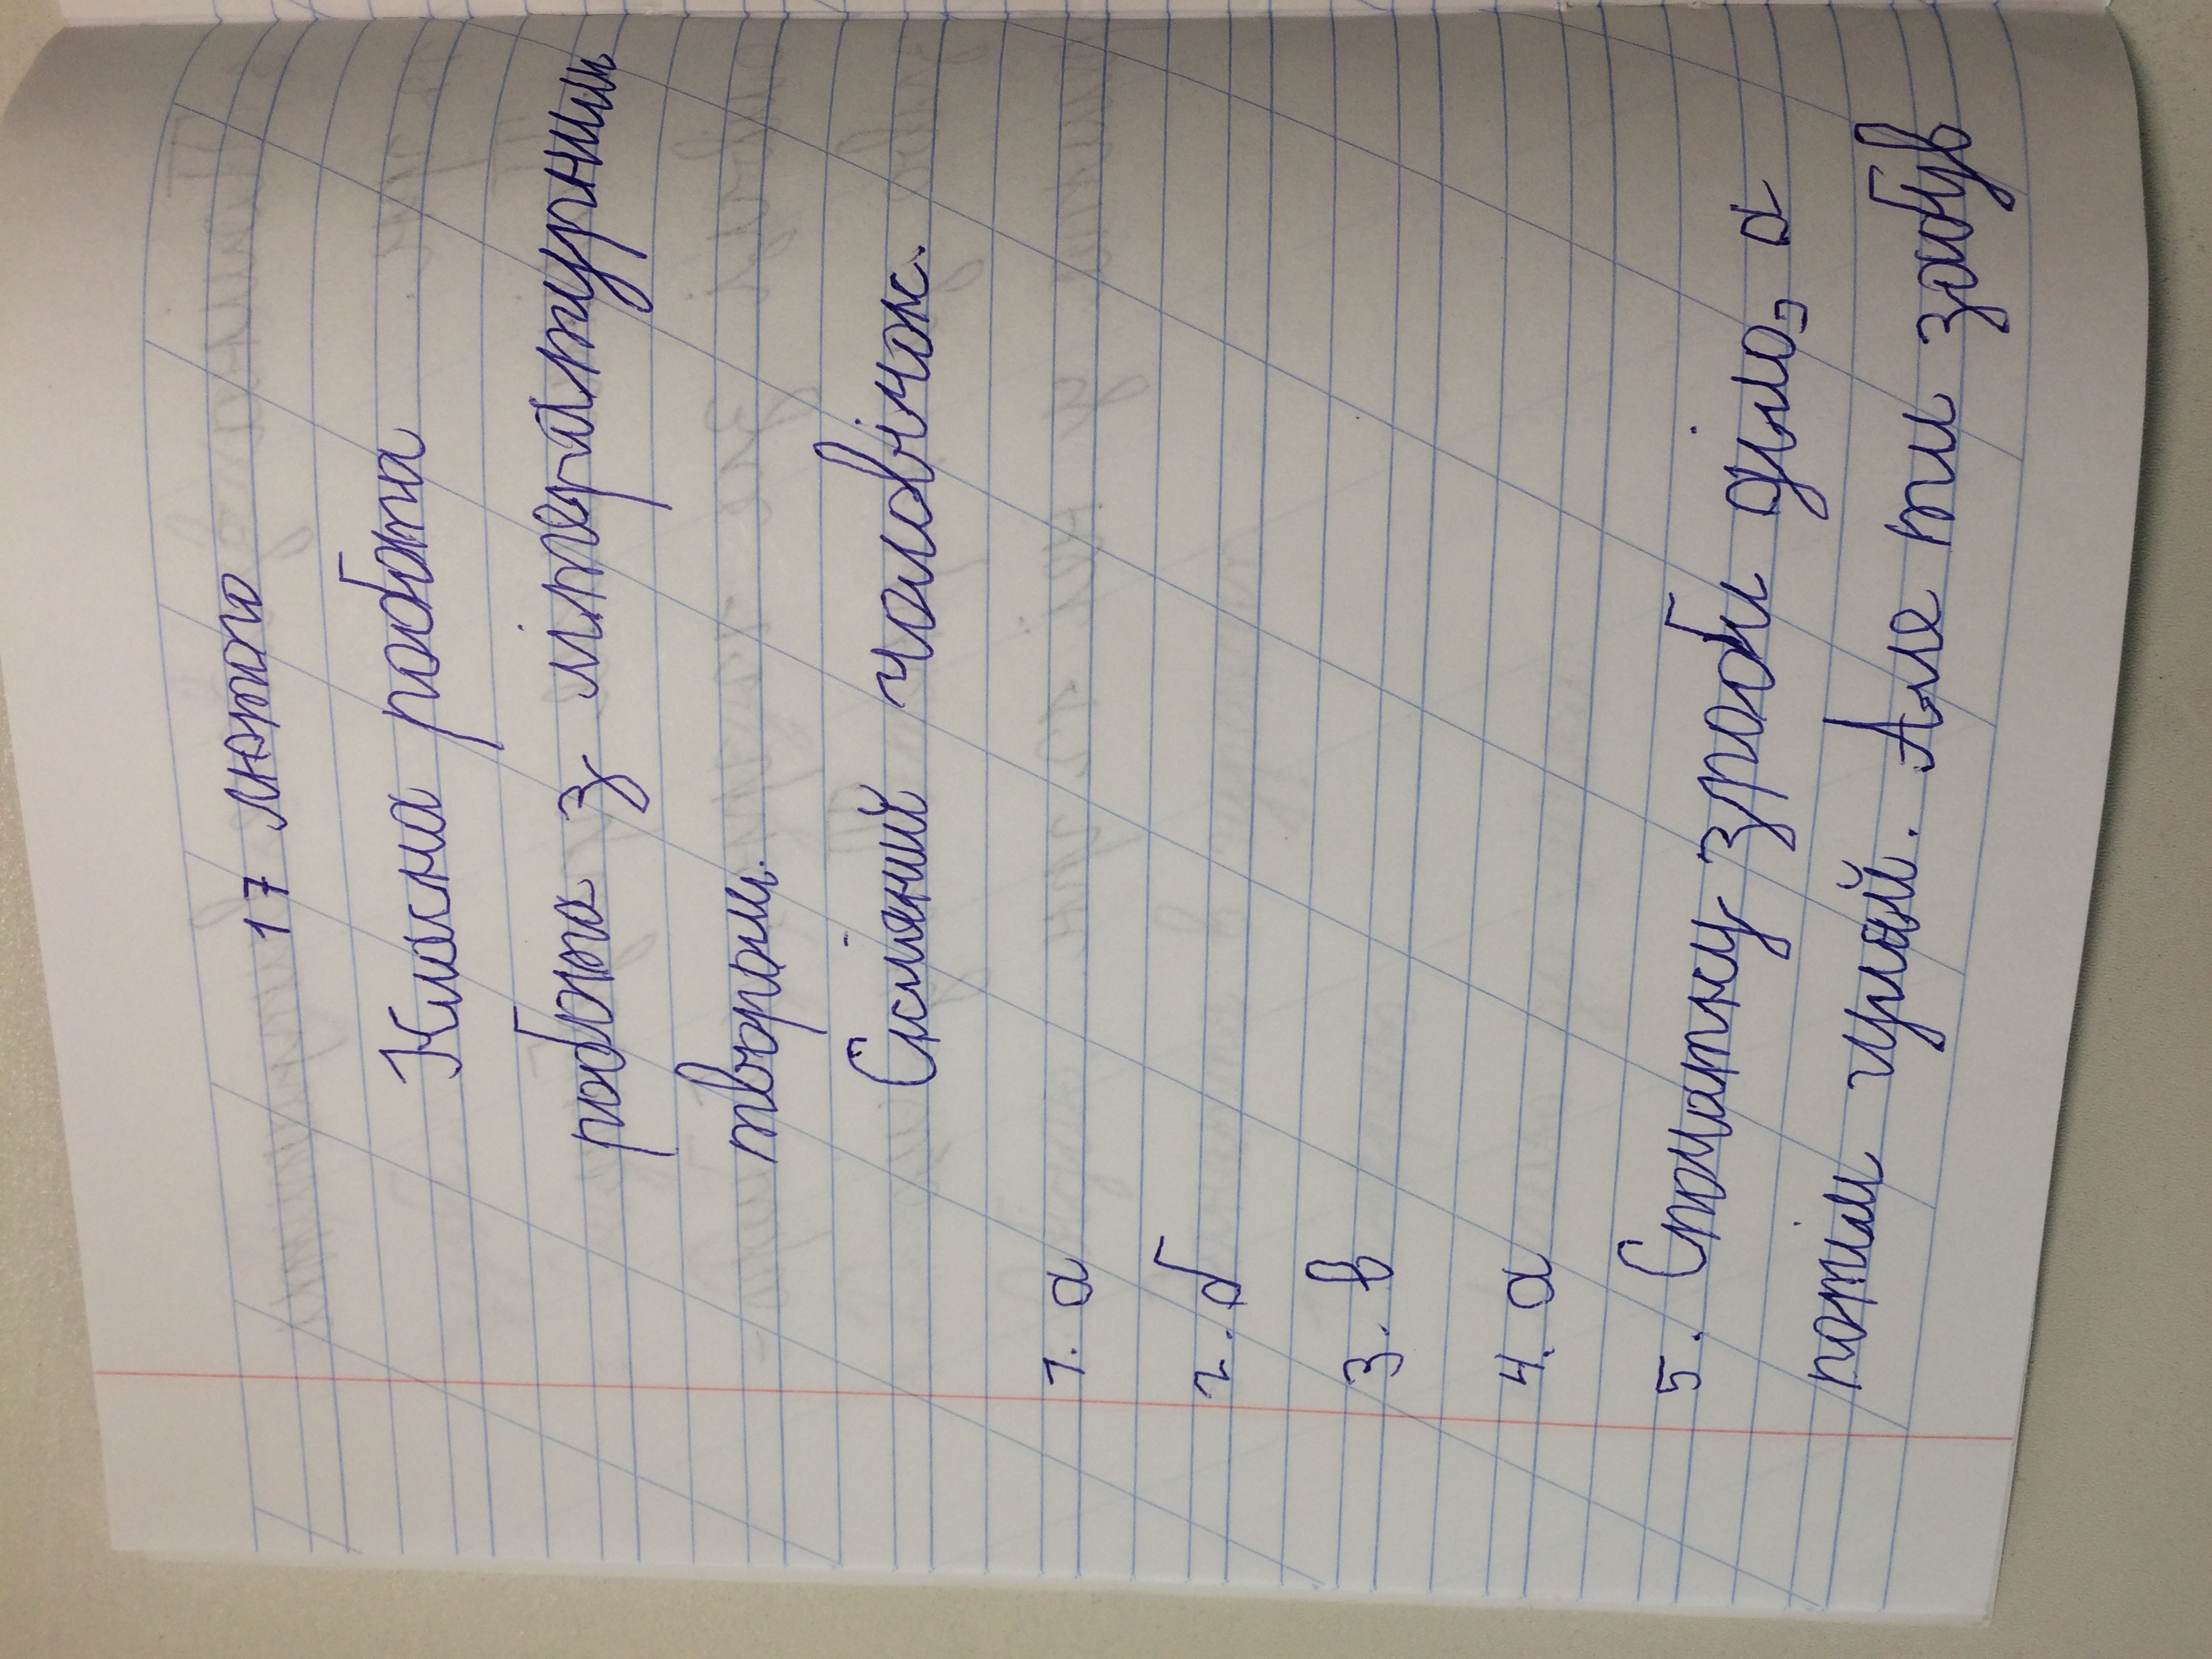 17 лютого
Класна робота
робота з літературним
твором.
Скляний чоловічок.
1. а
2. б
3. в
4. а
5. Спочатку зроби діло, а
потім гуляй. Але ти забув